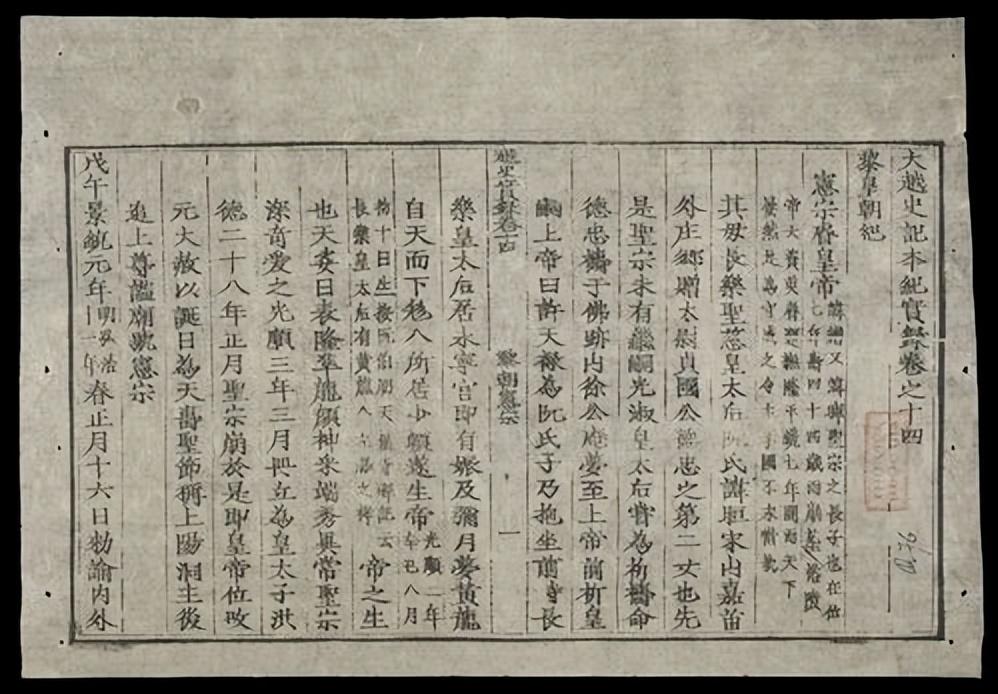 大越史記本紀實錄卷之十四
黎皇朝紀
憲宗睿皇帝
諱鏳又諱暉聖宗之長子也在位
七年壽四十四歲而崩葬裕陵
帝天資英睿撫隆平七年間而天下
晏然此為守成之令主享國不永惜哉
其母長樂聖慈皇太后阮氏諱晅宋山嘉苗
外庄鄉贈太尉貞國公德忠之第二女也先
是聖宗未有繼嗣光淑皇太后嘗為祈禱命
德忠禱于佛跡山徐公庵夢至上帝前祈皇
嗣上帝曰許天祿為阮氏子乃抱坐前長
越史實錄卷十四 黎朝憲宗 一
樂皇太后居永寧宮即有娠及彌月夢黃龍
自天而下移入所居少頃遂生帝光順二年辛巳八月
初十日生按阮伯朋天福寺碑記云
長樂皇太后有黃龍入之祥 帝之生
也天姿日表隆準龍顏神采端秀異常聖宗
深奇愛之光順三年三月冊立為皇太子洪
德二十八年正月聖宗崩於是即皇帝位改
元大赦以誕日為天壽聖節稱上陽洞主後
追上尊謚廟號憲宗
戊午景統元年明弘治十一年春正月十六日勑諭內外